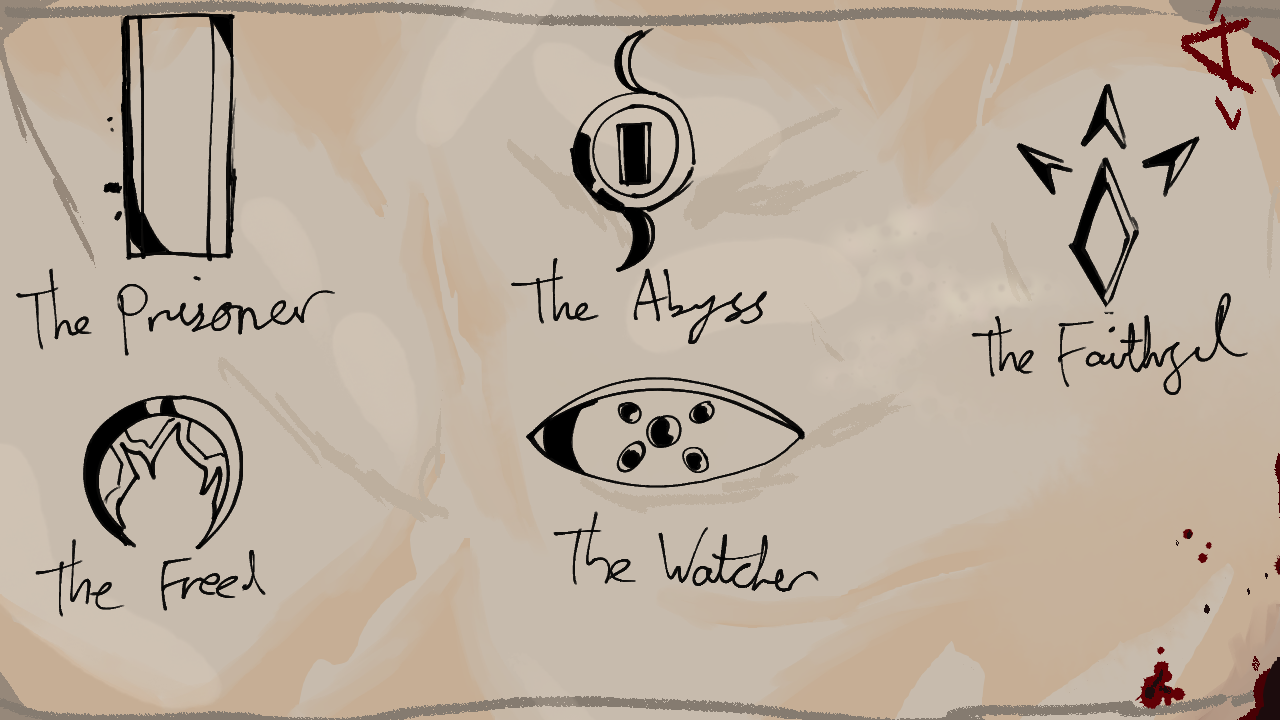 The Prisoner
The Abyss
The Faithful
The Freed
The Watcher